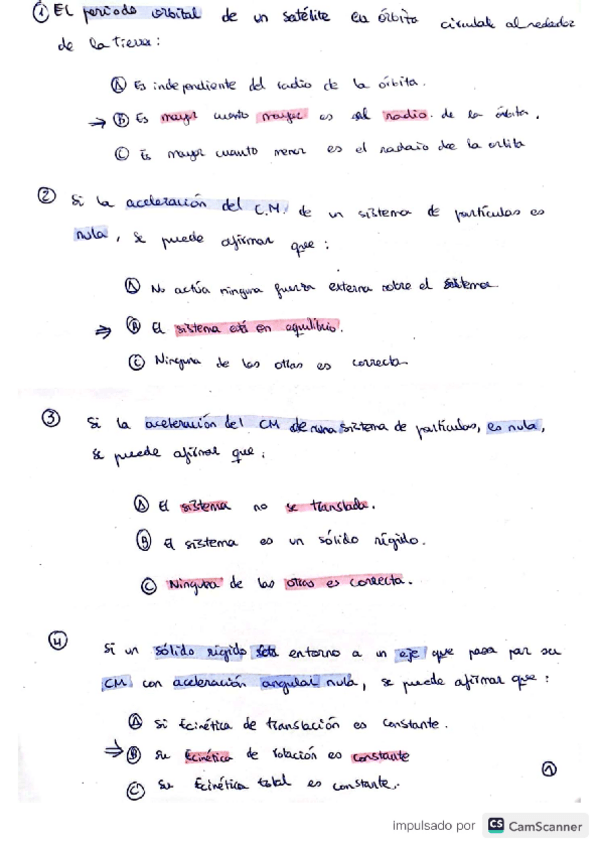 ① El periodo orbital de un satélite en órbita circular alrededor
de la tierra:
Ⓐ Es independiente del radio de la órbita.
→ Ⓑ Es mayor cuanto mayor es el radio. de la órbita.
Ⓒ Es mayor cuanto menor es el radio de la orbita
② Si la aceleración del C.M. de un sistema de partículas es
nula, se puede afirmar que:
Ⓐ No actúa ninguna fuerza externa sobre el sistema.
⇒ Ⓑ El sistema está en equilibrio.
Ⓒ Ninguna de las otras es correcta
③ Si la aceleración del CM de un sistema de partículas, es nula,
se puede afirmar que:
Ⓐ El sistema no se translada.
Ⓑ El sistema es un sólido rígido.
Ⓒ Ninguna de las otras es correcta.
④ Si un sólido rígido rota entorno a un eje que pasa por su
CM con aceleración angular nula, se puede afirmar que:
Ⓐ Si Ecinética de translación es constante.
⇒ Ⓑ Su Ecinética de rotación es constante
Ⓒ Su Ecinética total es constante.
①
impulsado por CS CamScanner